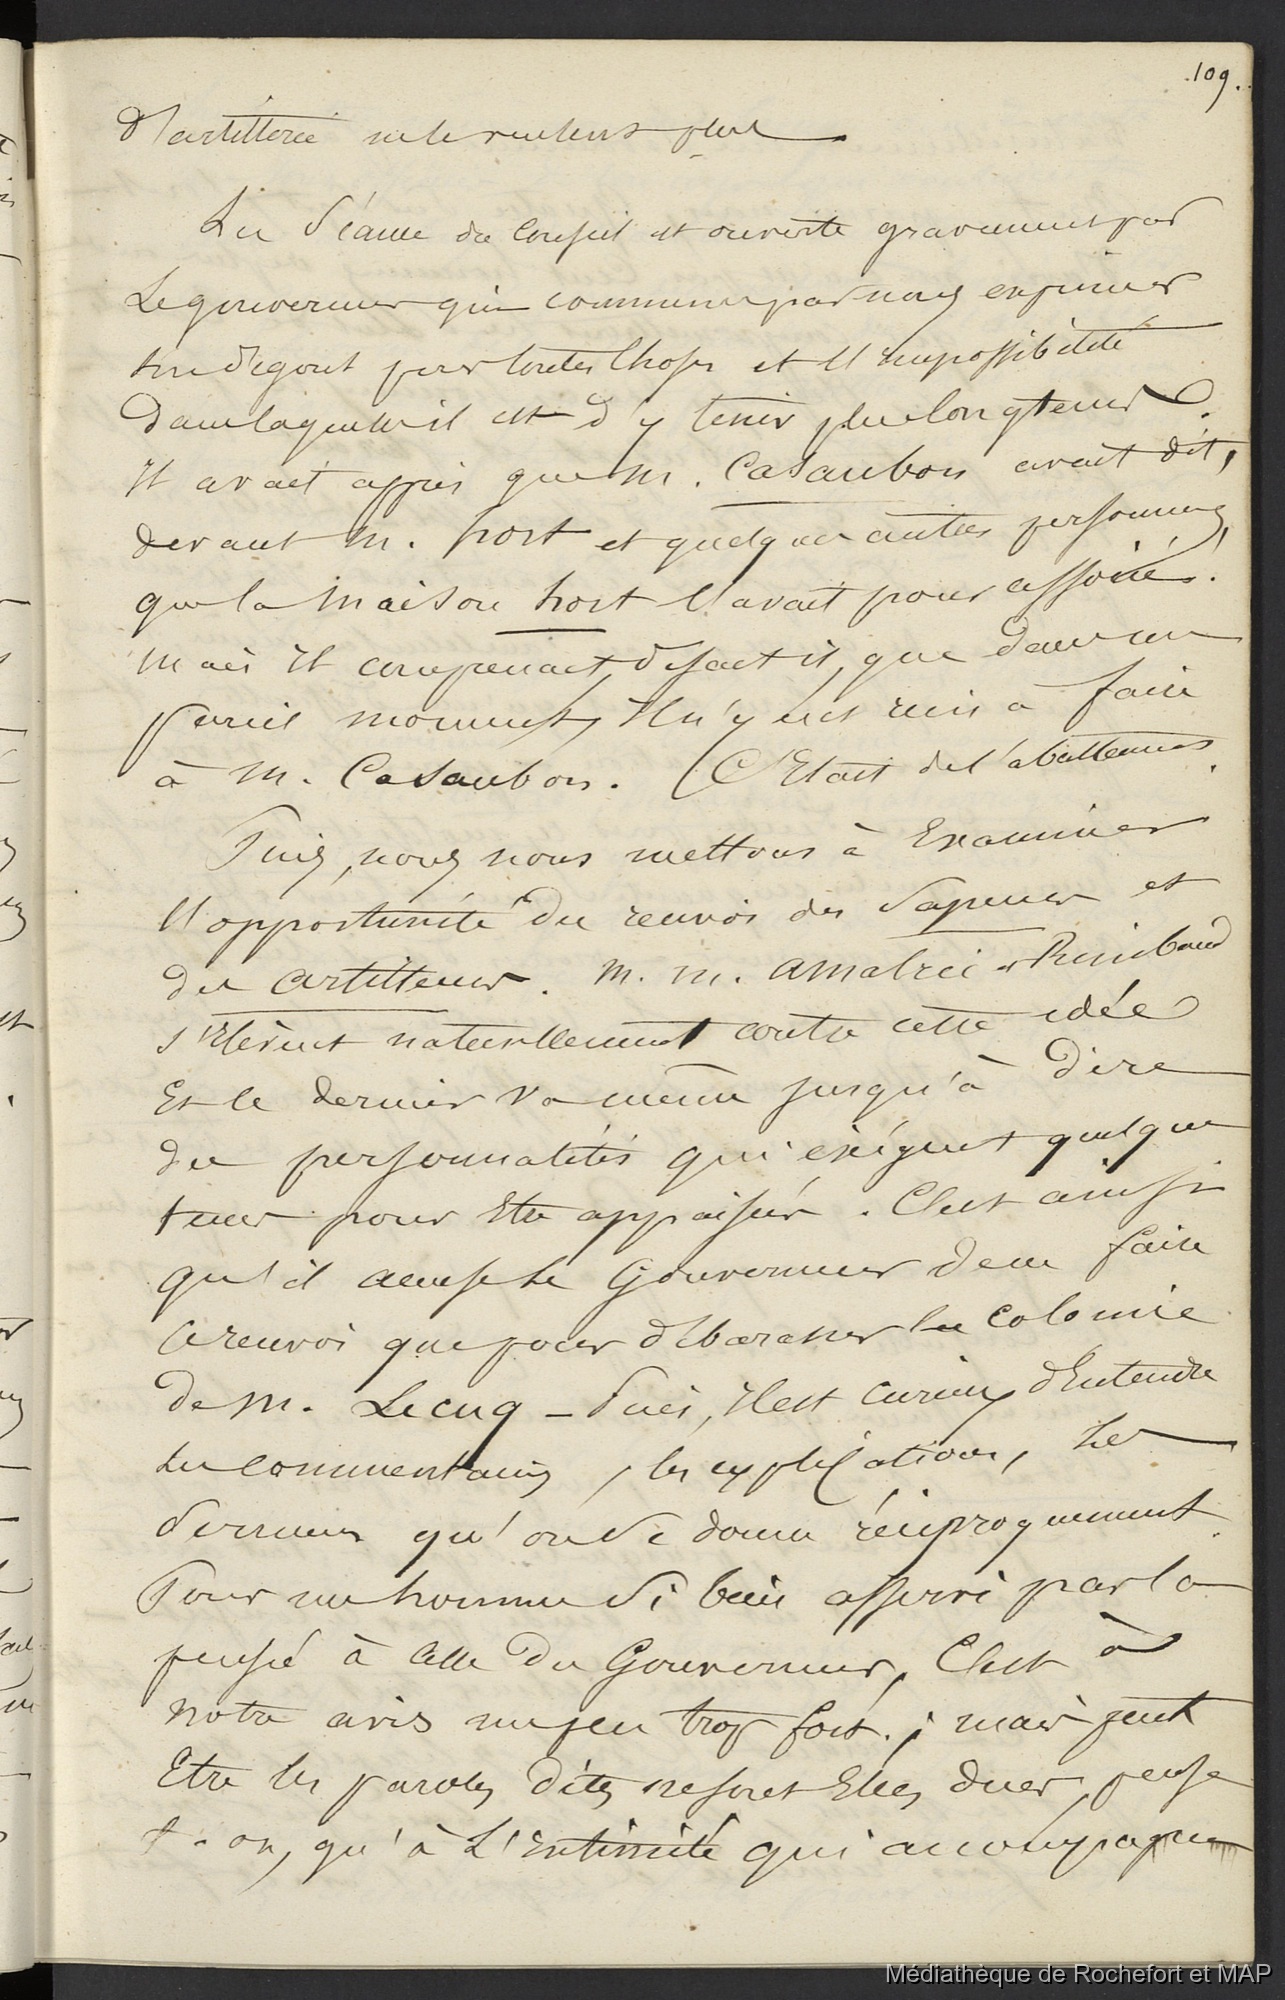 109.
d'artillerie ne le veulent plus.
La Séance du Conseil est ouverte gravement par
Le gouverneur qui commence par nous exprimer
son dégout pour toutes choses et l'impossibilité
dans laquelle il est d'y tenir plus longtems.
Il avait appris que M. Casaubon avait dit,
devant M. hort et quelques autres personnes,
que la Maison hort l'avait pour associé.
Mais il comprenait, disait il, que dans un
pareil moment, Il n'y eut rien à faire
à M. Casaubon. C'Etait de l'abattement.
Puis, nous nous mettons à Examiner
l'opportunité du renvoi des Sapeurs et
des artilleurs. M. M. Amalric et Raimbaud
s'Elèvent naturellement contre cette idée
Et le dernier va même jusqu'à dire
des personnalités qui éxigent quelque
tems pour Etre appaisées. C'est ainsi
qu'il accuse le Gouverneur de ne faire
ce renvoi que pour débarasser la colonie
de M. Lecuq - Puis, Il est curieux d'Entendre
les commentaires, les explications, les
Sermens qu'on Se donne réciproquement.
Pour un homme Si bien asservi par la
pensée à celle du Gouverneur, C'est à
notre avis un peu trop fort.; mais peut
Etre les paroles dites ne sont Elles dues, pense
t-on, qu'à L'Intimité qui accompagne
Médiathèque de Rochefort et MAP